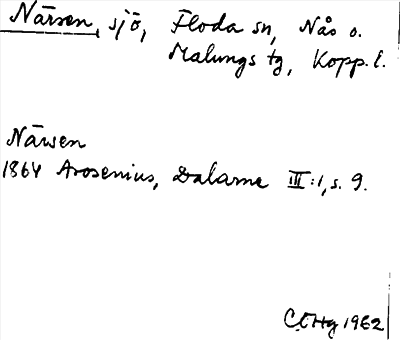 Närsen, sjö, Floda sn, Nås o.
Malungs tg, Kopp. l.
Närsen
1864 Arosenius, Dalarne III:1, s. 9.
CEHg 1962